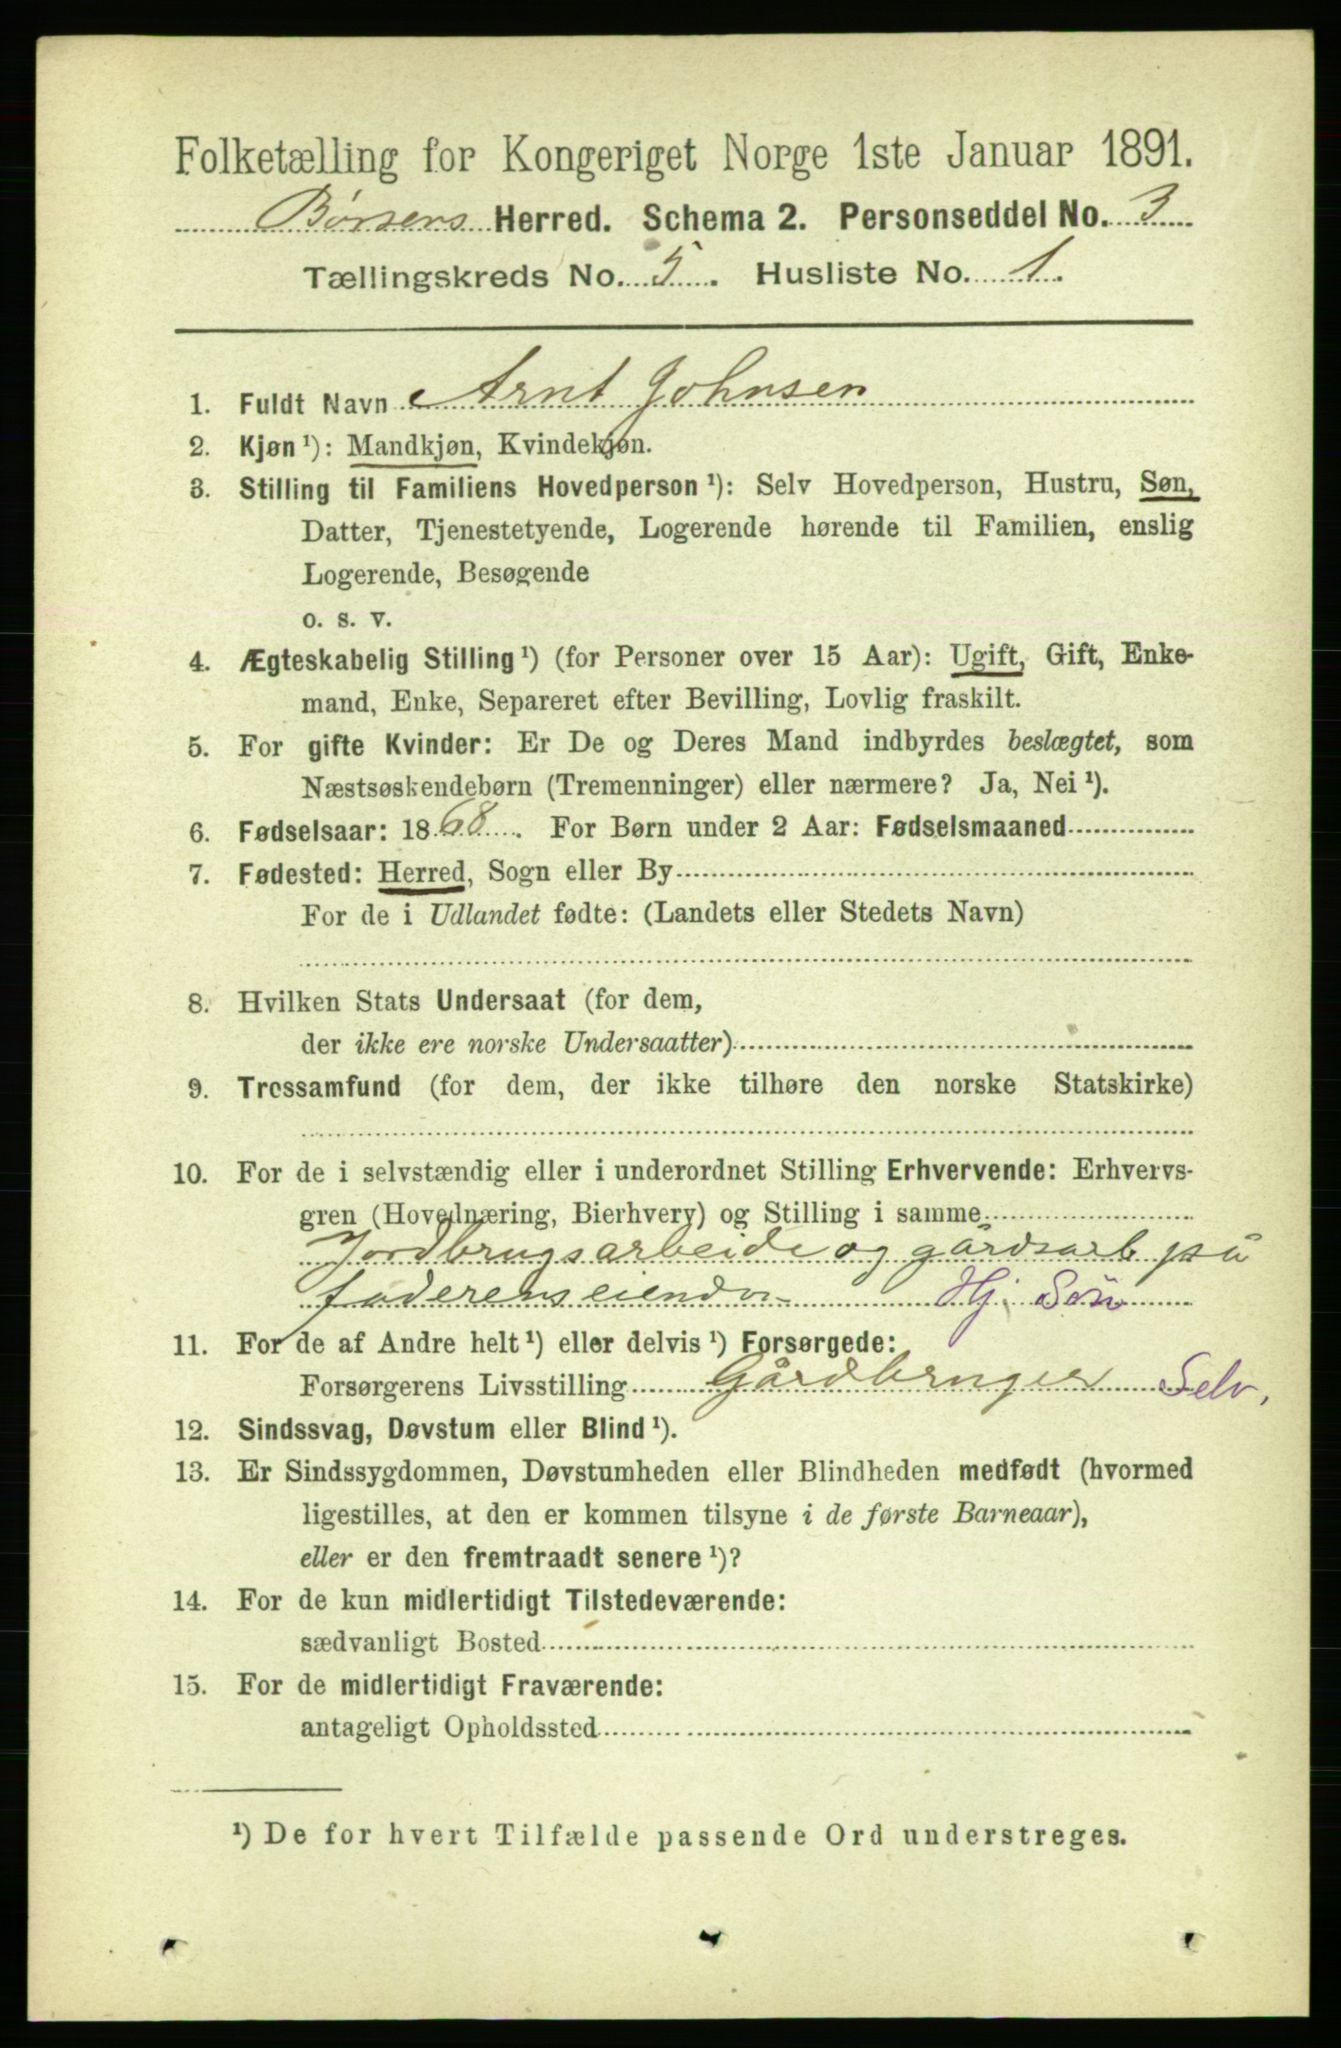 Folketælling for Kongeriget Norge 1ste Januar 1891.
Børsens Herred. Schema 2. Personseddel No. 3
Tællingskreds No. 5. Husliste No. 1.
1. Fuldt Navn Arnt Johnsen
2. Kjøn ¹): Mandkjøn, Kvindekjøn.
3. Stilling til Familiens Hovedperson ¹): Selv Hovedperson, Hustru, Søn,
Datter, Tjenestetyende, Logerende hørende til Familien, enslig
Logerende, Besøgende
o. s. v.
4. Ægteskabelig Stilling ¹) (for Personer over 15 Aar): Ugift, Gift, Enke-
mand, Enke, Separeret efter Bevilling, Lovlig fraskilt.
5. For gifte Kvinder: Er De og Deres Mand indbyrdes beslægtet, som
Næstsøskendebørn (Tremenninger) eller nærmere? Ja, Nei ¹).
6. Fødselsaar: 1868. For Børn under 2 Aar: Fødselsmaaned
7. Fødested: Herred, Sogn eller By
For de i Udlandet fødte: (Landets eller Stedets Navn)
8. Hvilken Stats Undersaat (for dem,
der ikke ere norske Undersaatter)
9. Trossamfund (for dem, der ikke tilhøre den norske Statskirke)
10. For de i selvstændig eller i underordnet Stilling Erhvervende: Erhvervs-
gren (Hovednæring, Bierhverv) og Stilling i samme
Jordbrugsarbeide og gårdsarb på
faderens eiendom Hj. Søn
11. For de af Andre helt ¹) eller delvis ¹) Forsørgede:
Forsørgerens Livsstilling Gårdbruger Selv,
12. Sindssvag, Døvstum eller Blind ¹).
13. Er Sindssygdommen, Døvstumheden eller Blindheden medfødt (hvormed
ligestilles, at den er kommen tilsyne i de første Barneaar),
eller er den fremtraadt senere ¹)?
14. For de kun midlertidigt Tilstedeværende:
sædvanligt Bosted
15. For de midlertidigt Fraværende:
antageligt Opholdssted
¹) De for hvert Tilfælde passende Ord understreges.